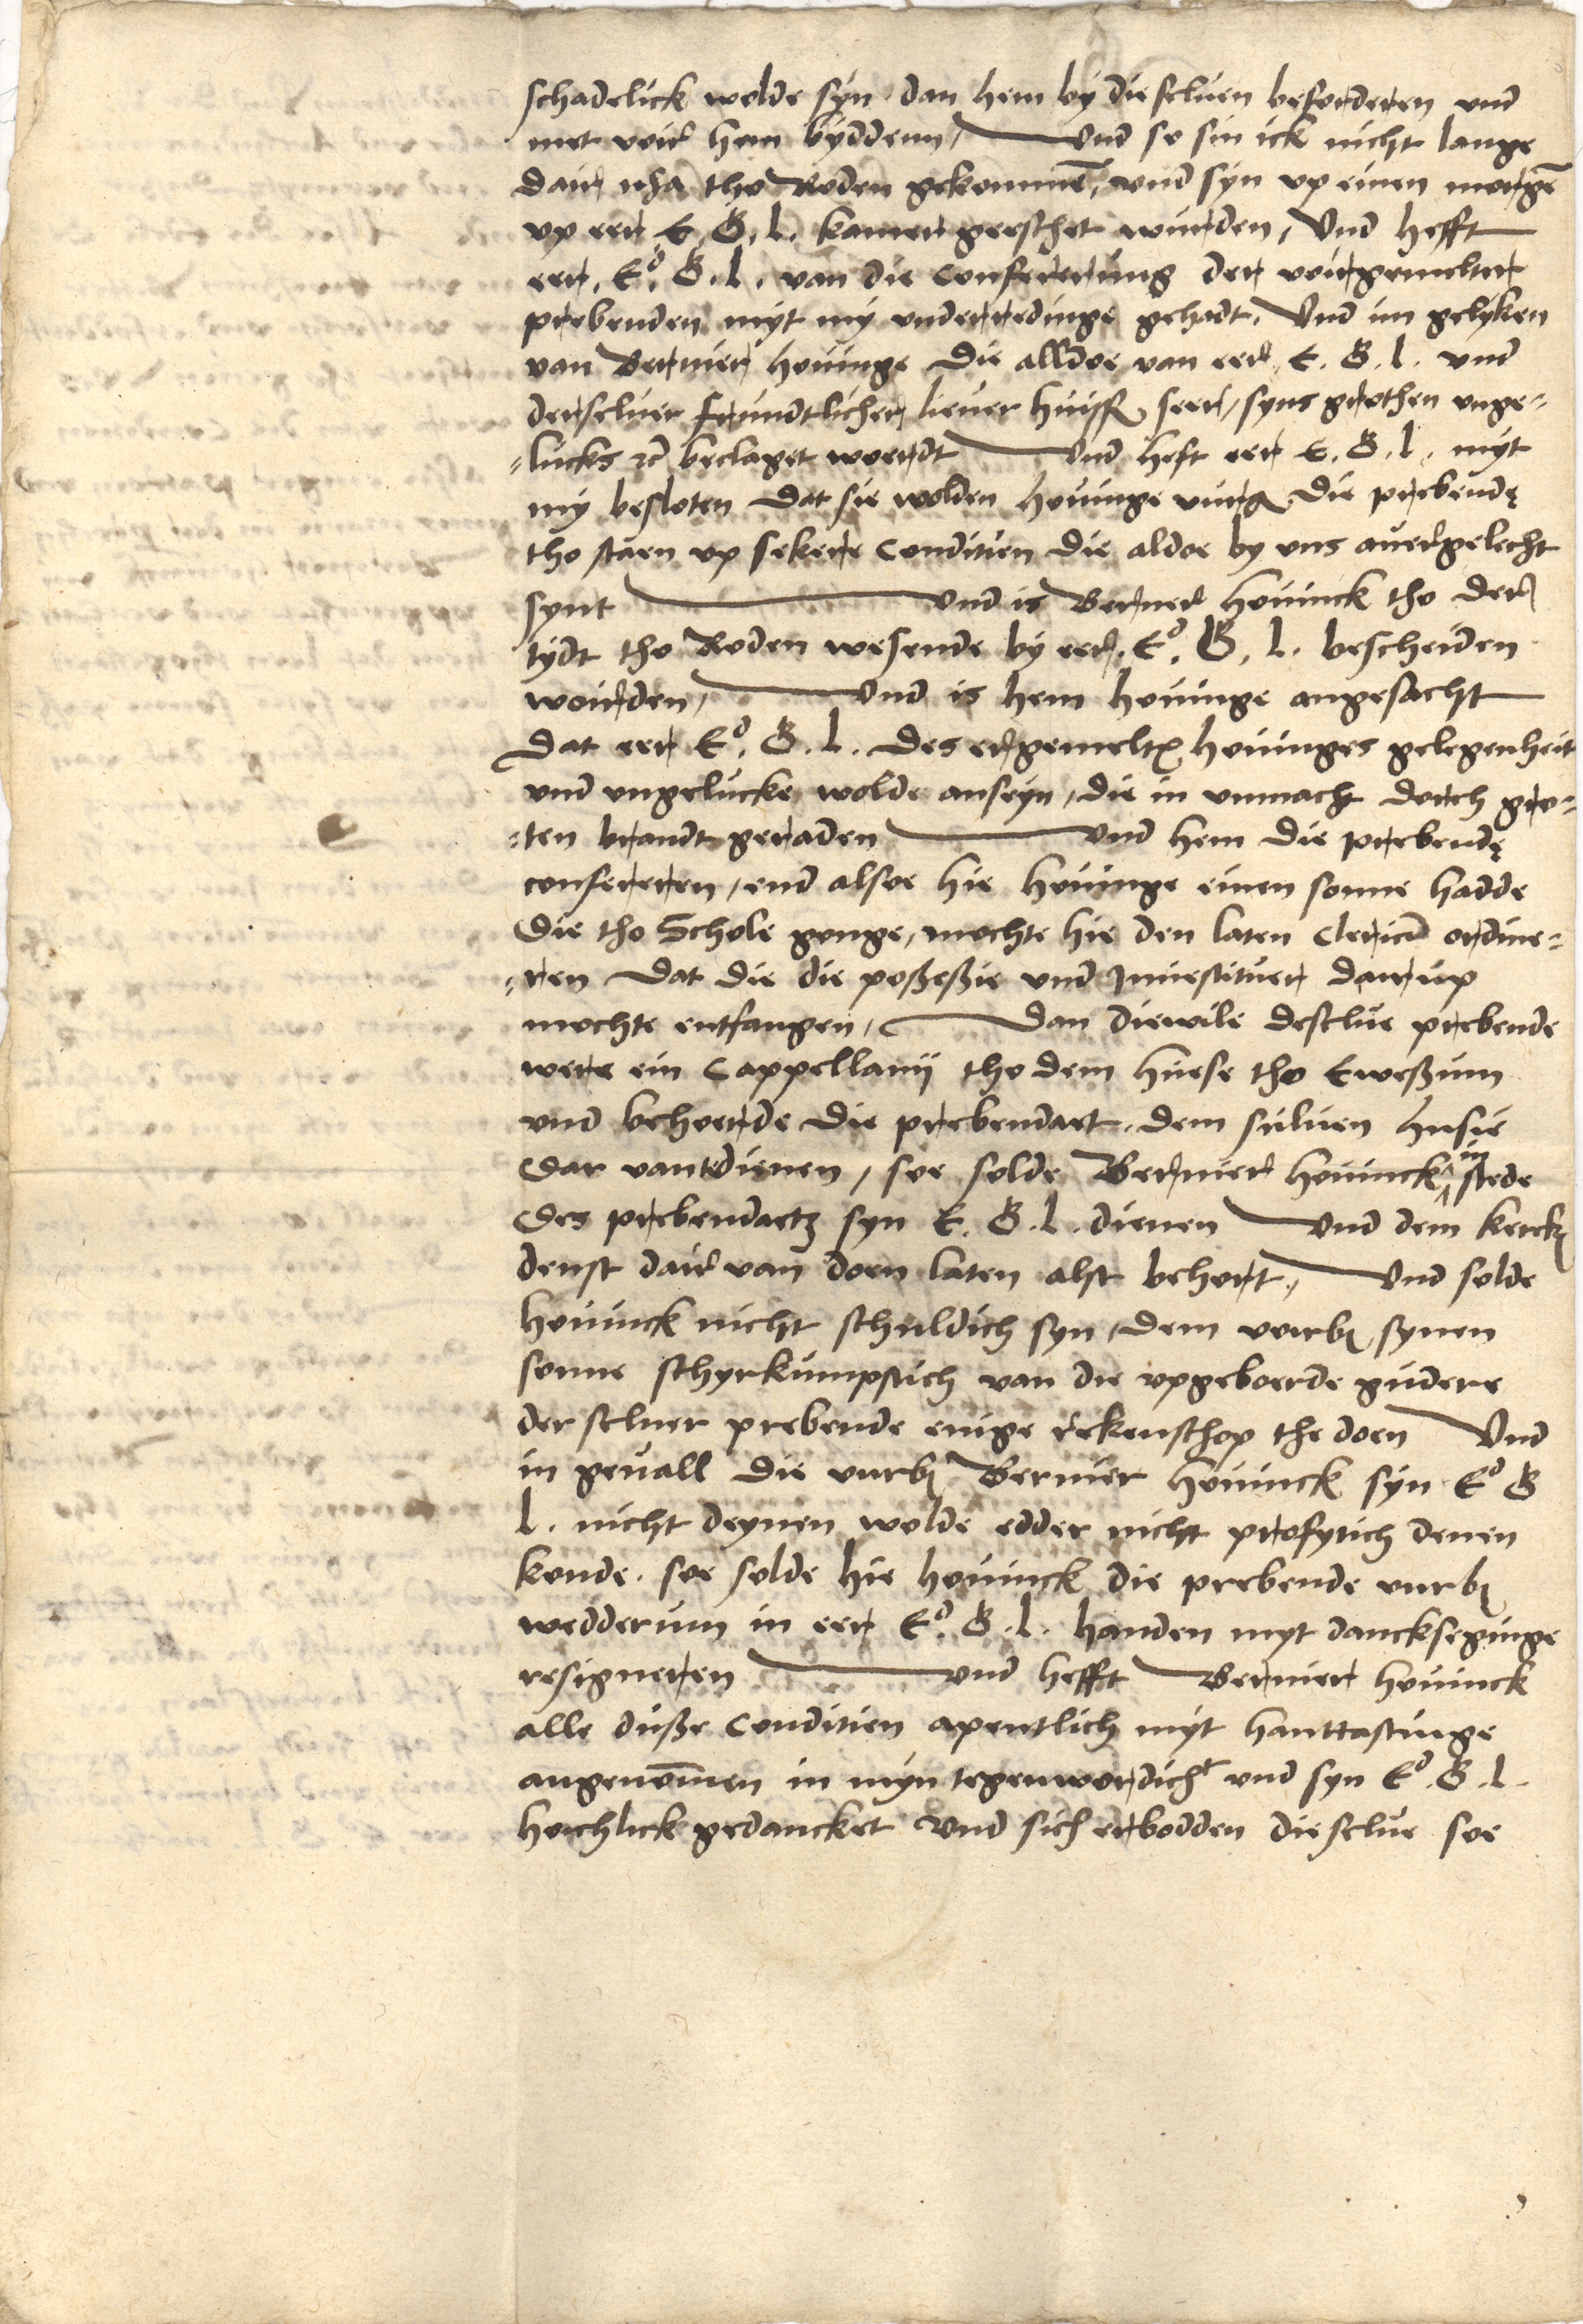 schadelick wolde syn dan hem by dieseluen beforderen vnd
met voir hem byddenn, Vnd so sin ick nicht lange
dair nha tho Roden gekommen, vnd syn vp einen morgen
vp eer E. G. L. kamer geeschet wurden, Vnd hefft
eer. Ed. G. L. van die Conferierung der voirgemelter
prebenden myt my vnderredinge gehadt, Vnd im gelyken
van Berner Houinge die alldoe van eer E. G. L. vnd
derseluer frundtlicher liever huisfr seer, syns grothen vnge-
-lucks etc beclaget woerdt Vnd heft eer E. G. L. myt
my besloten dat sie wolden Houinge vurg die prebende
tho staen vp sekere Conditien die aldoe by vns auergelecht
synt Vnd is Berner Houinck tho der
tydt tho Roden wesende by eer. Ed. G. L. bescheiden
woirden, Vnd is hem Houinge angesacht
Dat eer Ed. G. L. des ergemelten Houinges gelegenheit
vnd vngelucke wolde anseyn, die in vnmacht dorch gro-
-ten brandt geraden Vnd hem die prebende
confereren, end alsoe hie Houinge einen sonne hadde
Die tho Schole gonge, mochte hie den laten Clericum ordine-
-ren dat die die poßeßie vnd Jnuestituer dairup
mochte entfangen, Dan diewile deselue prebende
were ein Cappellanij tho dem huese tho Eweßum
vnd behoerde die prebendaet dem suluen husie
Dar van te dienen, soe solde Berner Houinck in stede
Des prebendaetz syn E. G. L. dienen Vnd dem kerck
denst dair van doen laten alst behort, Vnd solde
Houinck nicht schuldich syn, dem voirß synen
sonne schyrkumpstich van die vpgeboerde gudere
der seluer prebende enige rekenschop tho doen Vnd
in geuall die vurß Berner Houinck syn Ed G
L. nicht deynen wolde edder nicht profytich denen
konde. soe solde hie Houinck die prebende vurß
wedderum in eer Ed. G. L. handen myt dancksegginge
resigneren Vnd hefft Berner Houinck
alle duße Conditien apentlich myt hanttastinge
angenommen in myn tegenwordicht vnd syn Ed. G. L.
hoichlick gedancket Vnd sich erbodden dieselue soe